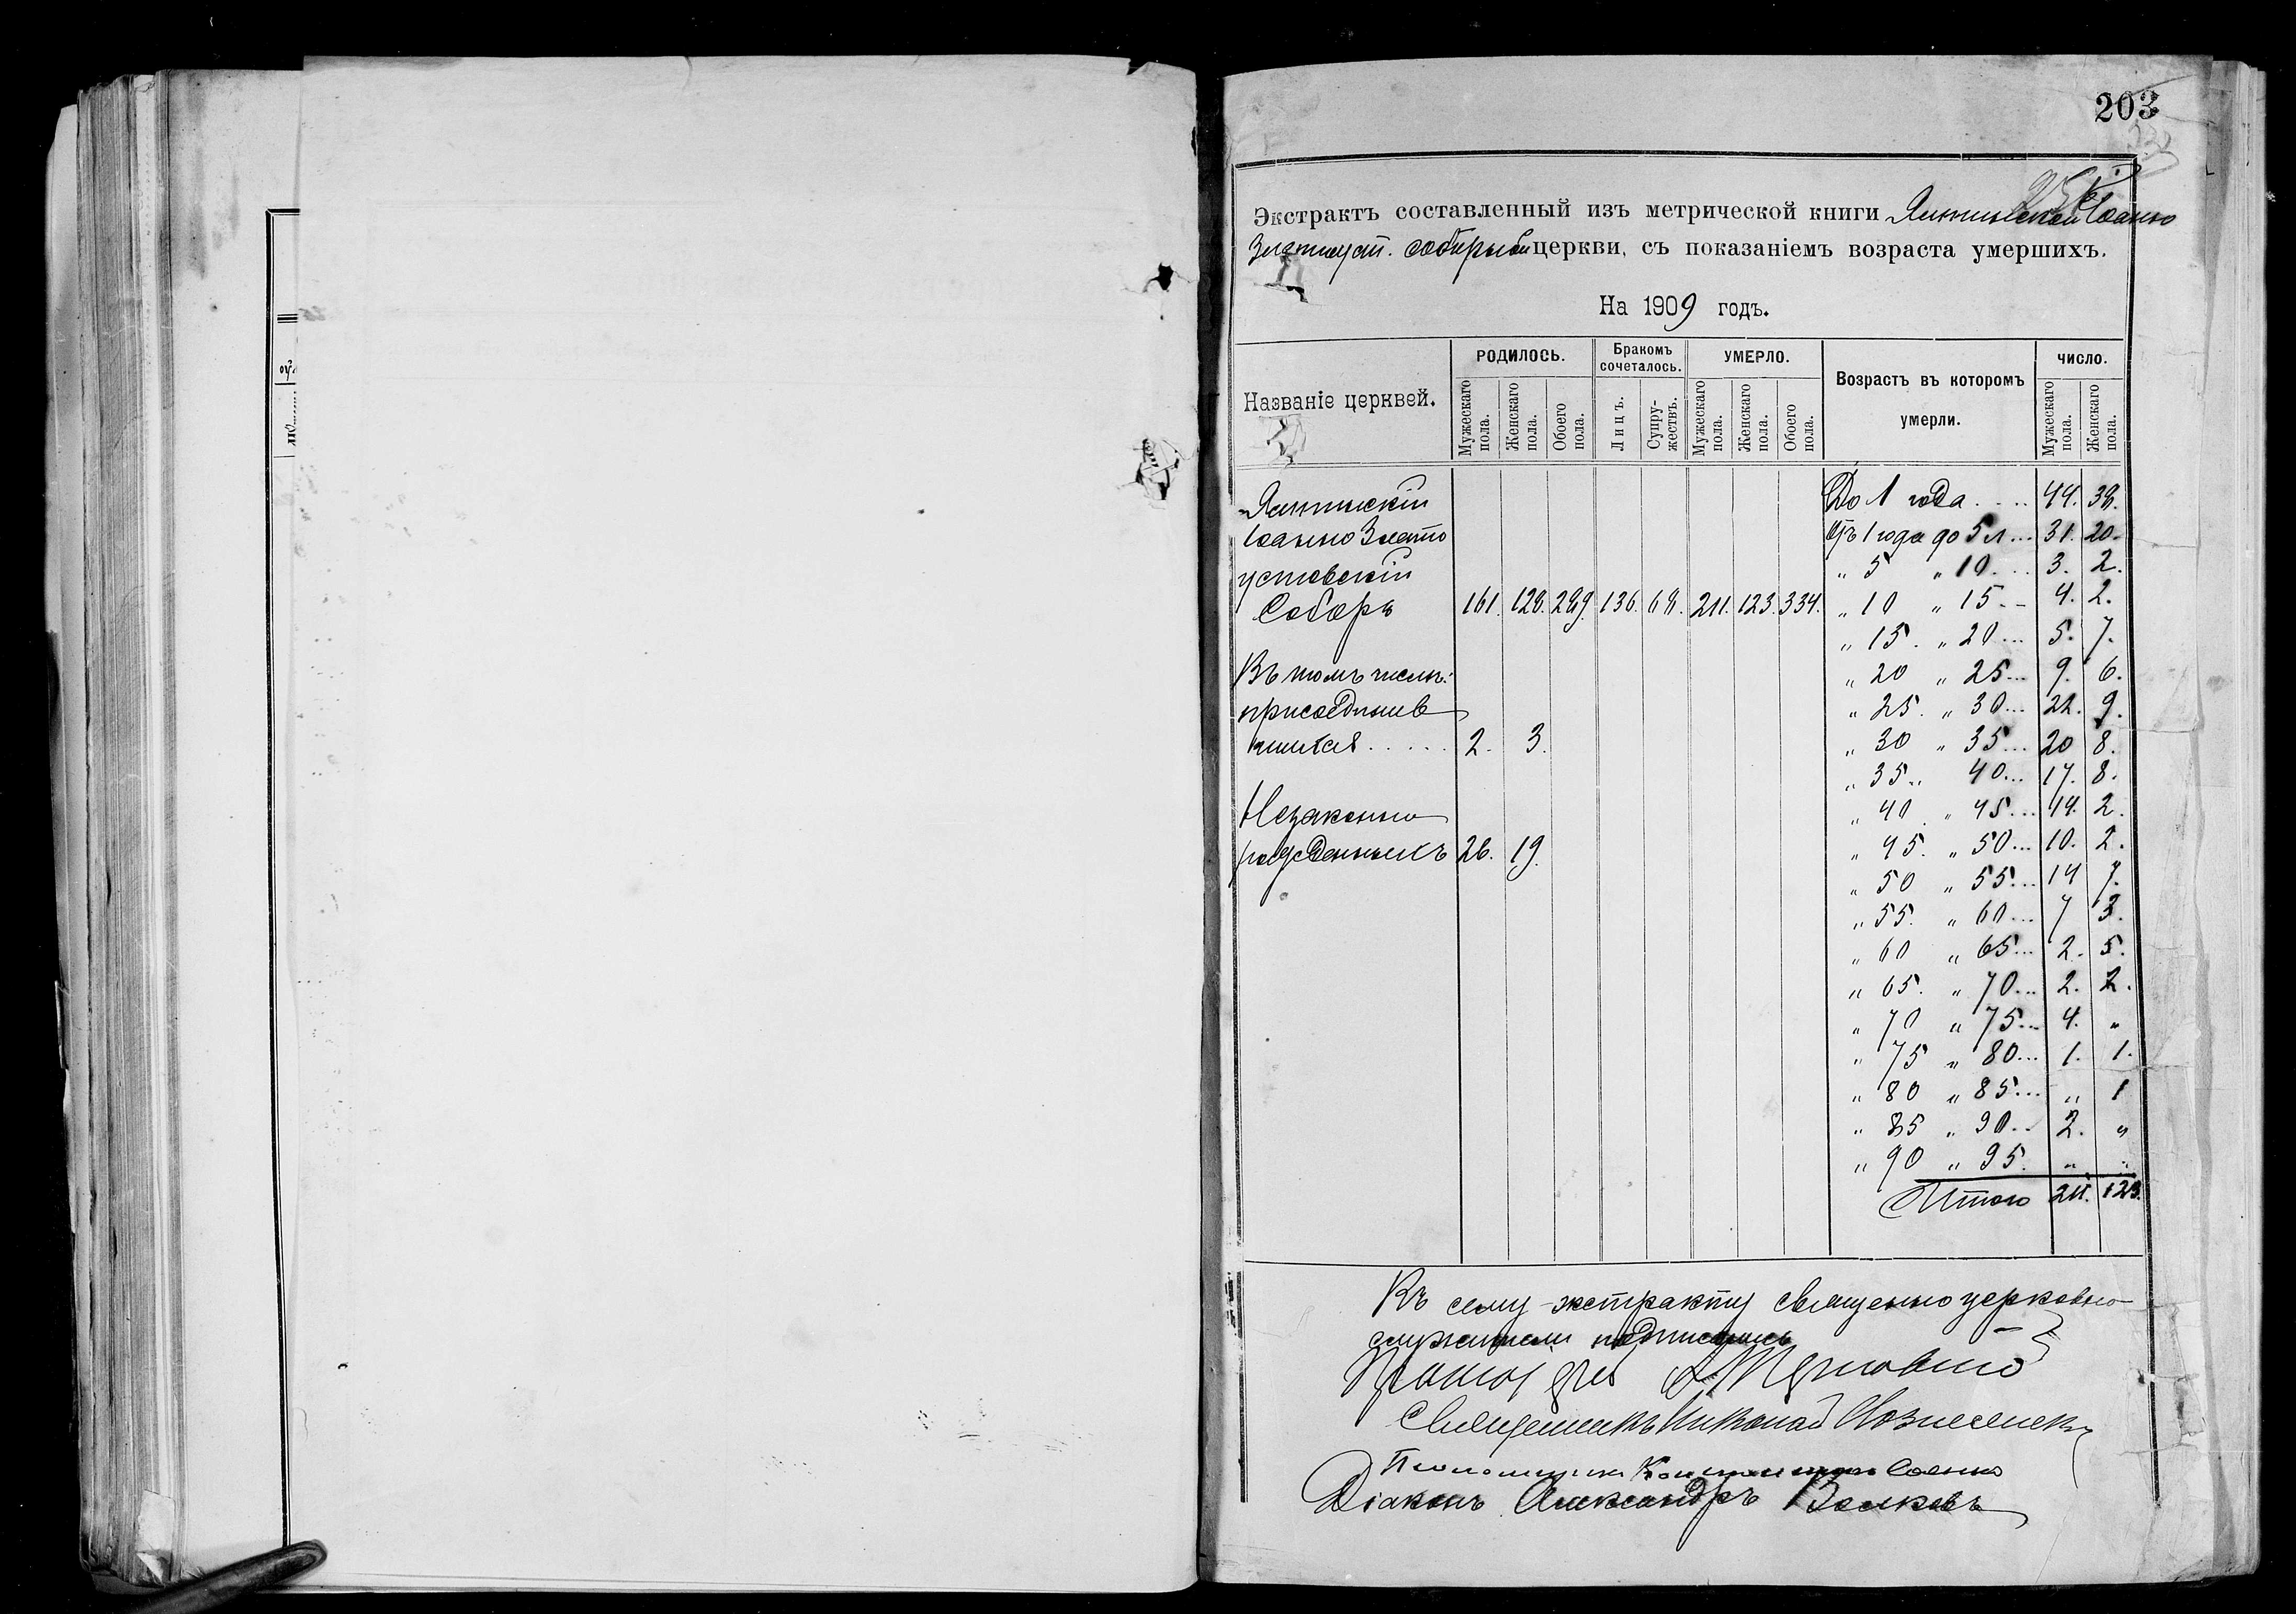 203
Экстрактъ составленный изъ метрической книги Ялтинской Іоанно
Златоуст. соборной церкви, съ показаніемъ возраста умершихъ.
На 1909 годъ.
Названіе церквей.
РОДИЛОСЬ.
Мужескаго пола.
Женскаго пола.
Обоего пола.
Бракомъ сочеталось.
Лицъ.
Супружествъ.
УМЕРЛО.
Мужескаго пола.
Женскаго пола.
Обоего пола.
Возрастъ въ которомъ умерли.
ЧИСЛО.
Мужескаго пола.
Женскаго пола.
Ялтинскій
Іоанно Злато
устовскій
Соборъ 161. 128. 289. 136. 68. 211. 123. 334.
Въ томъ числѣ:
присоедине
2. 3.
Незаконно
рожденныхъ 26. 19.
До 1 года.... 44. 38.
Отъ 1 года до 5 л... 31. 20.
" 5 " 10... 3. 2.
" 10 " 15.. 4. 2.
" 15. " 20... 5. 7.
" 20 " 25... 9. 6.
" 25. " 30... 22. 9.
" 30 " 35... 20 8.
" 35 " 40... 17. 8.
" 40 " 45... 14. 2.
" 45. " 50... 10. 2.
" 50 " 55... 14 7.
" 55. " 60... 7 3.
" 60 " 65... 2. 5.
" 65. " 70... 2. 2.
" 70 " 75... 4. "
" 75 " 80... 1. 1.
" 80 " 85... " 1
" 85 " 90.. 2. "
" 90 " 95. " "
Итого 211. 123.
Къ сему экстракту священно церковно-
служители подписались
Протоіерей А. Терновскій
Священникъ Николай Вознесенск
Псаломщикъ Константинъ
Діаконъ Александръ Волковъ